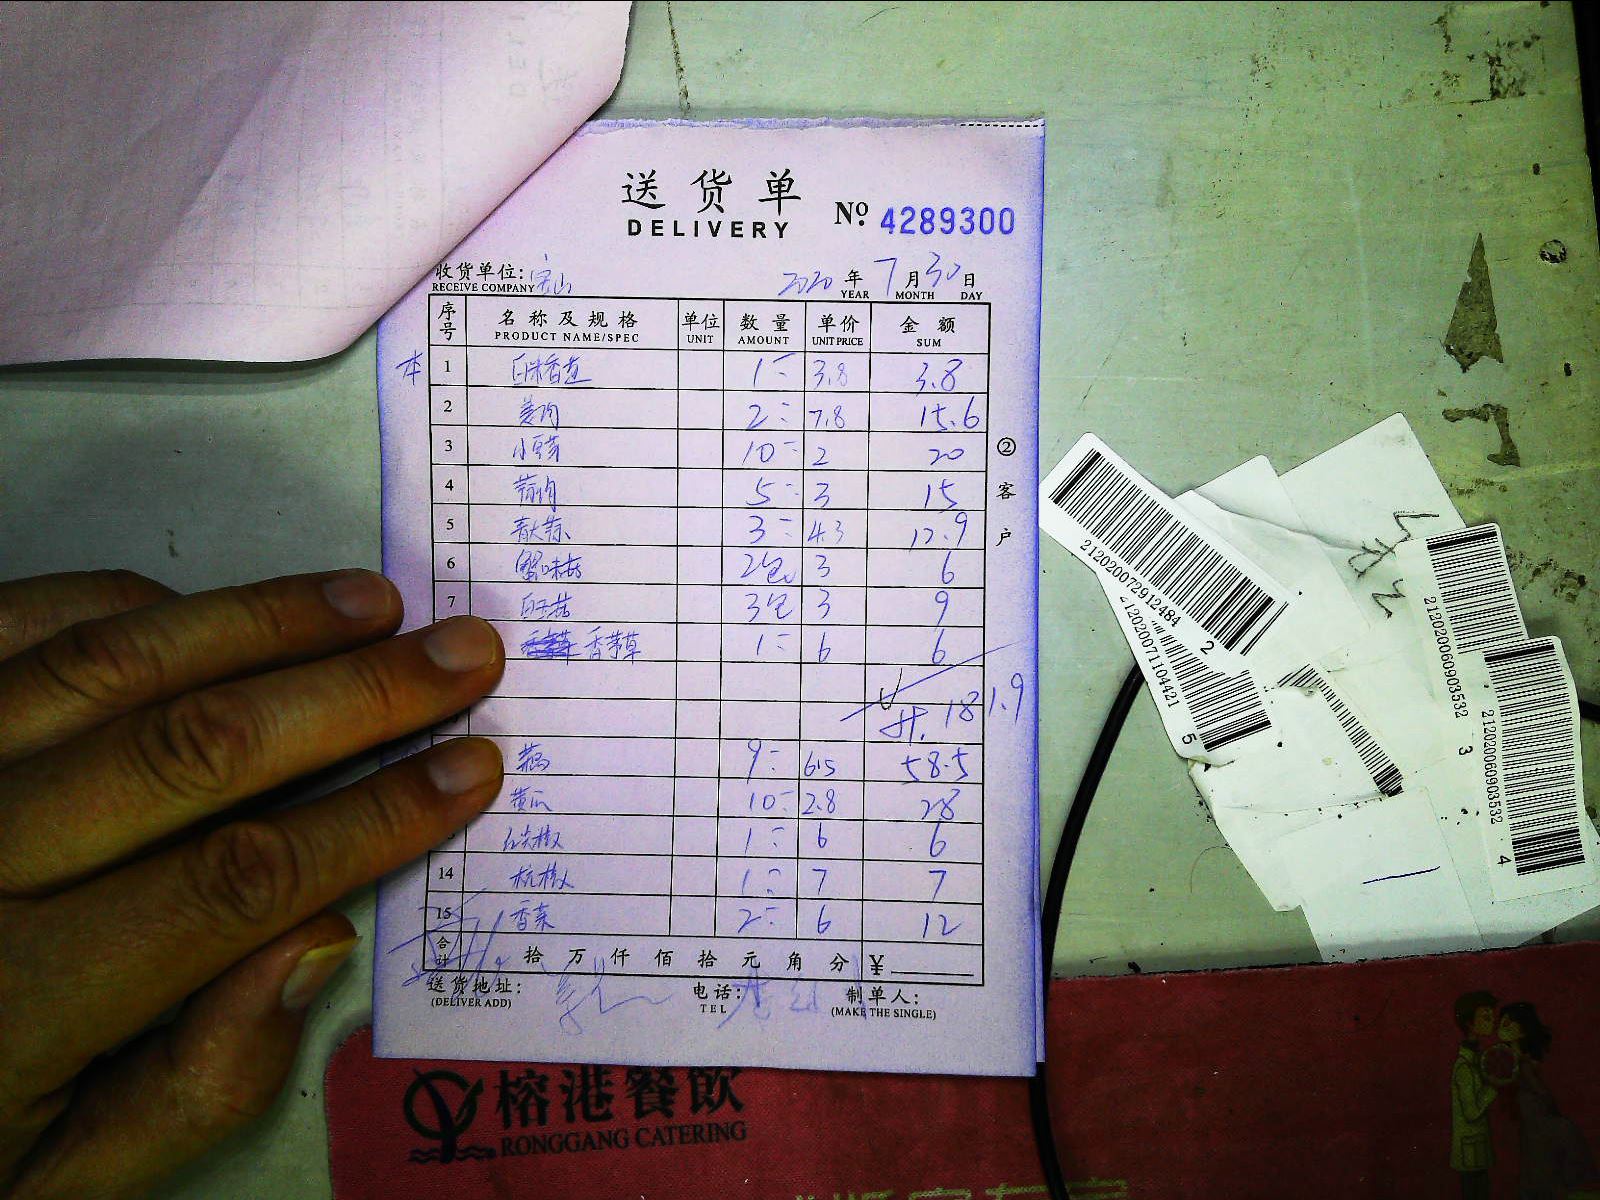 送货单
DELIVERY
№ 4289300
收货单位: 宝山 2020 年 7 月 30 日
RECEIVE COMPANY YEAR MONTH DAY
序号 名称及规格 单位 数量 单价 金额
PRODUCT NAME/SPEC UNIT AMOUNT UNIT PRICE SUM
1 3.8 3.8
2 姜肉 2 7.8 15.6
3 小豆芽 10 2 20
4 5 3 15
5 青大蒜 3 4.3 12.9
6 蟹味菇 2包 3 6
7 白玉菇 3包 3 9
香茅草 1 6 6
共 181.9
9 6.5 58.5
黄瓜 10 2.8 28
1 6 6
14 杭椒 1 7 7
15 香菜 2 6 12
合计 拾 万 仟 佰 拾 元 角 分 ¥
送货地址: 电话: 制单人:
(DELIVER ADD) TEL (MAKE THE SINGLE)
② 客户
榕港餐飲
RONGGANG CATERING
212020072912484 2
212020071104421 5
212020060903532 3
212020060903532 4